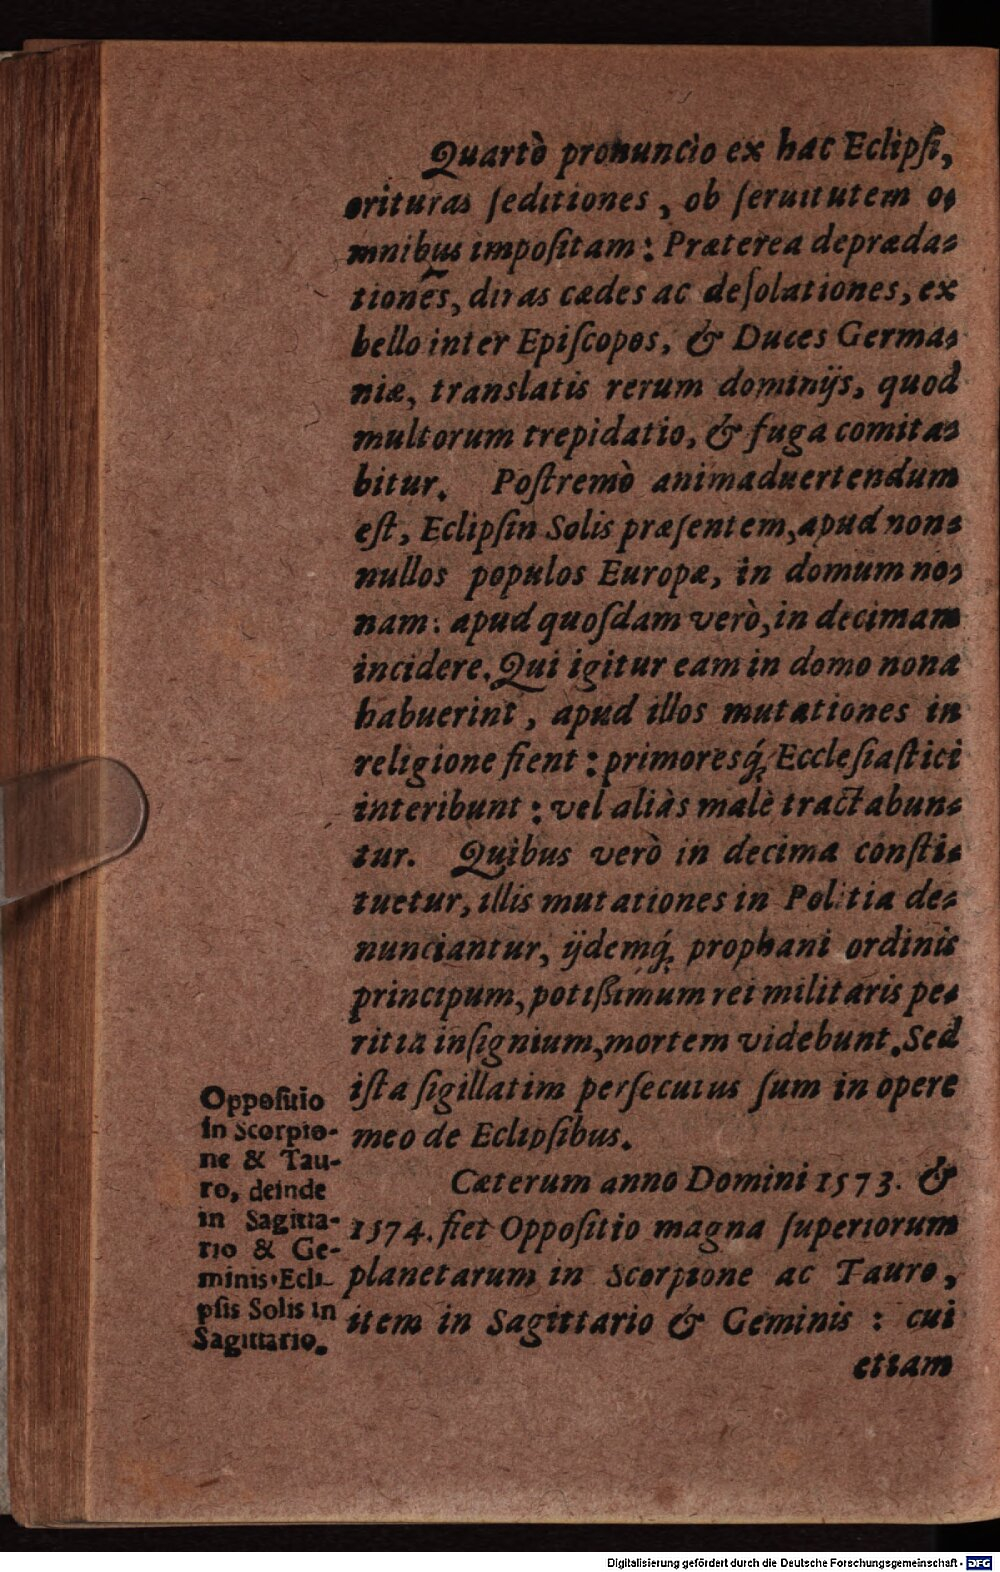 Quartò pronuncio ex hac Eclipſi,
orituras ſeditiones, ob ſeruitutem o⸗
mnibus impoſitam: Præterea depræda⸗
tiones, diras cædes ac deſolationes, ex
bello inter Epiſcopos, & Duces Germa⸗
niæ, translatis rerum dominijs, quod
multorum trepidatio, & fuga comita⸗
bitur. Poſtremò animaduertendum
eſt, Eclipſin Solis præſentem, apud non⸗
nullos populos Europæ, in domum no⸗
nam: apud quoſdam verò, in decimam
incidere. Qui igitur eam in domo nona
habuerint, apud illos mutationes in
religione fient: primoresq́; Eccleſiaſtici
interibunt: vel aliàs malè tractabun⸗
tur. Quibus verò in decima conſti⸗
tuetur, illis mutationes in Politia de⸗
nunciantur, ijdemq́; prophani ordinis
principum, potißimùm rei militaris pe⸗
ritia inſignium, mortem videbunt. Sed
iſta ſigillatim perſecutus ſum in opere
meo de Eclipſibus.
Oppoſitio
in Scorpio-
ne & Tau-
ro, deinde
in Sagitta-
rio & Ge-
minis. Ecli-
pſis Solis in
Sagittario.
Cæterum anno Domini 1573. &
1574. fiet Oppoſitio magna ſuperiorum
planetarum in Scorpione ac Tauro,
item in Sagittario & Geminis: cui
etiam
Digitalisierung gefördert durch die Deutsche Forschungsgemeinschaft - DFG